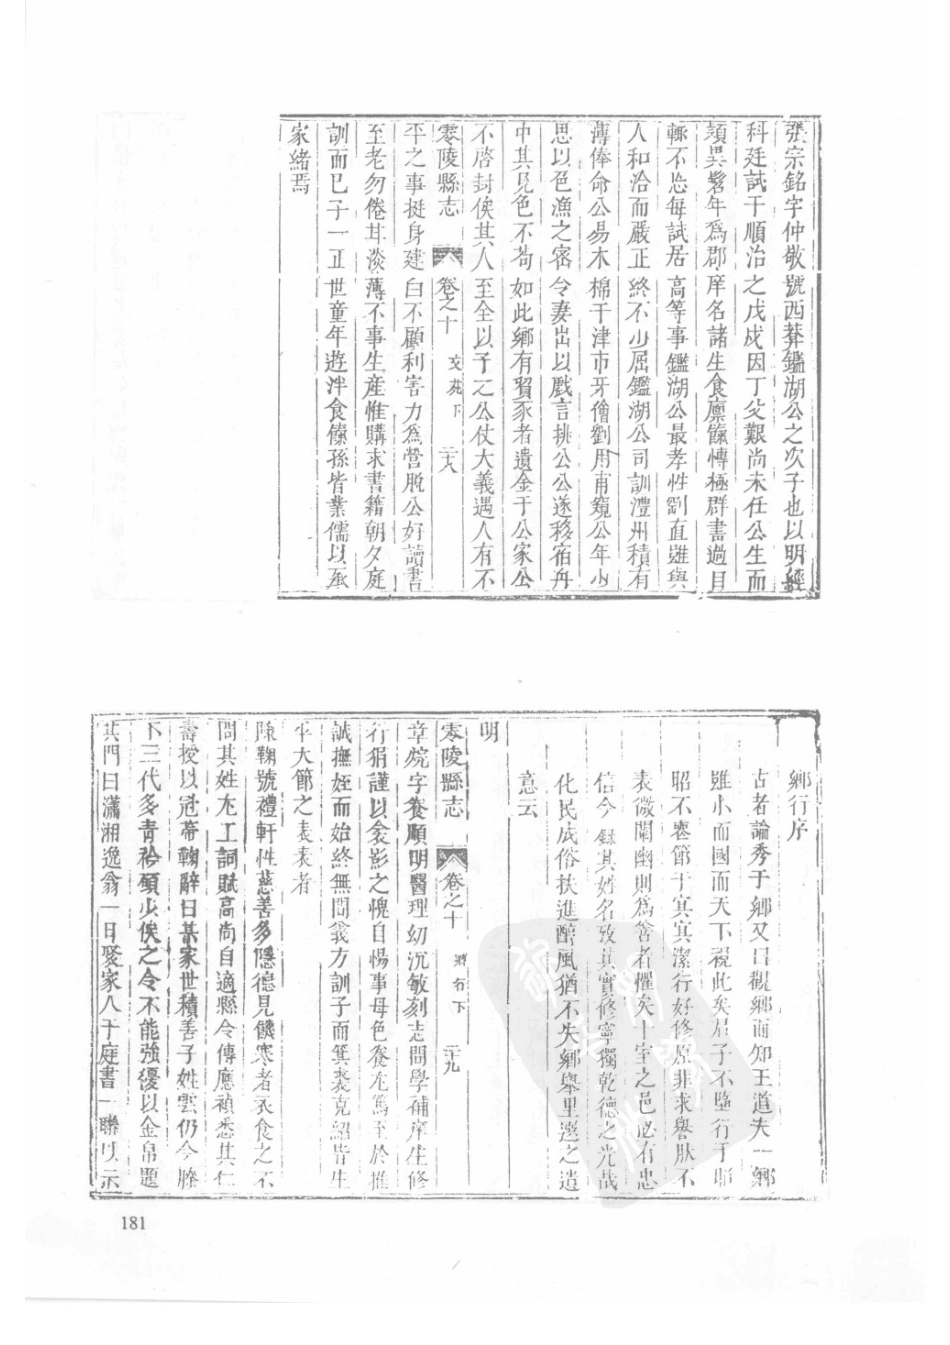 張宗銘字仲敬號西莽鑑湖公之次子也以明經
科廷試于順治之戊戌因丁父艱尚未任公生而
頴異髫年爲郡庠名諸生食廪餼愽極群書過目
輒不忘每試居高等事鑑湖公最孝性剛直雖與
人和洽而嚴正終不少屈鑑湖公司訓澧州積有
薄俸命公易木棉于津市牙儈劉用甫窺公年少
思以色漁之密令妻出以戲言挑公公遂移宿舟
中其見色不苟如此鄉有賢豕者遺金于公家公
不啓封俟其人至全以予之公仗大義遇人有不
零陵縣志 卷之十 文苑下 二十八
平之事挺身建白不顧利害力爲營脫公好讀書
至老勿倦甘淡薄不事生産惟購求書籍朝夕庭
訓而已子一正世童年遊泮食餼孫皆業儒以承
家緒焉
鄉行序
古者論秀于鄉又曰觀鄉而知王道夫一鄉
雖小而國而天下視此矣君子不墮行于昭
昭不變節于冥冥潔行好修原非求譽肰不
表微闡幽則爲善者懼矣十室之邑必有忠
信今錄其姓名攷其實修寧獨乾德之光哉
化民成俗扶進醇風猶不失鄉舉里選之遺
意云
明
零陵縣志 卷之十 鄉行下 二十九
章烷字養順明醫理幼沉敏刻志問學補庠生修
行狷謹以衾影之愧自惕事母色養尤篤至於推
誠撫姪而始終無間義方訓子而箕裘克紹皆生
平大節之表表者
陳鞠號禮軒性慈善多隱德見饑寒者衣食之不
問其姓尤工詞賦高尚自適縣令傅應禎悉其仁
壽授以冠帶鞠辭曰某家世積善子姓雲仍今膝
下三代多青衿頭少俟之令不能強優以金帛題
其門曰瀟湘逸翁一日聚家人于庭書一聯以示
181